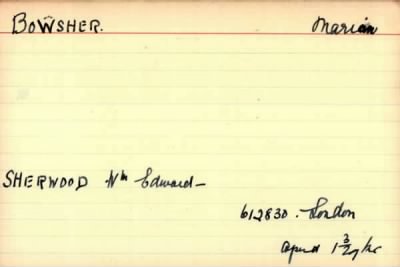 BOWSHER. Marian
SHERWOOD Wm Edward —
612830. London